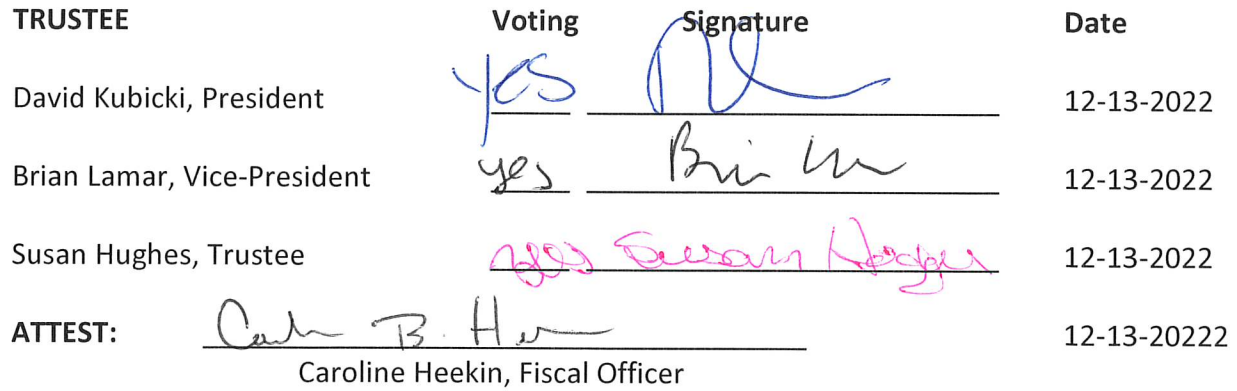 TRUSTEE Voting Signature Date
David Kubicki, President yes 12-13-2022
Brian Lamar, Vice-President yes 12-13-2022
Susan Hughes, Trustee yes Susan Hughes 12-13-2022
ATTEST: 12-13-20222
Caroline Heekin, Fiscal Officer